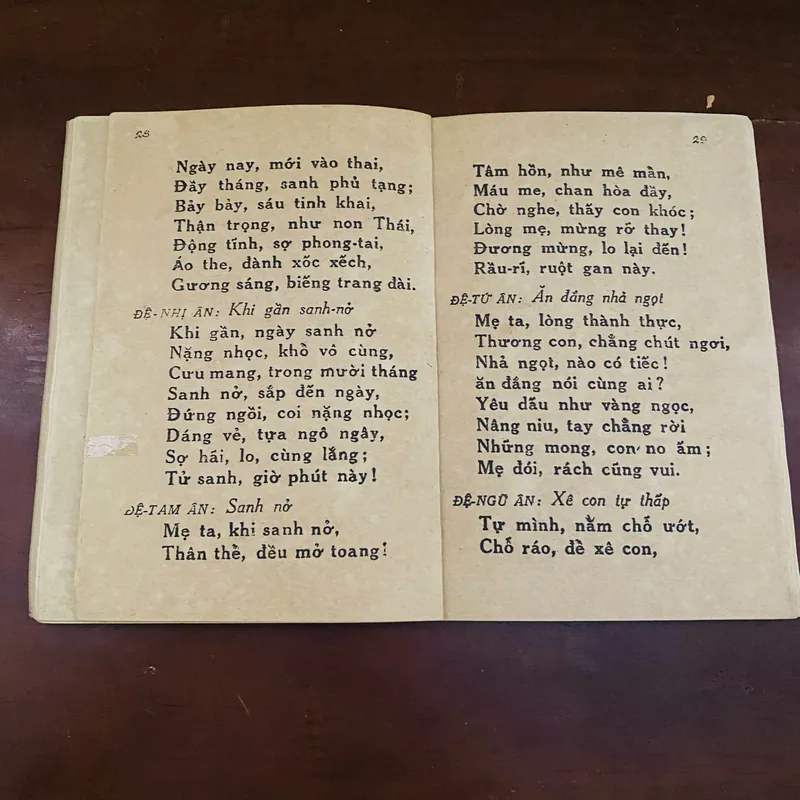 28
Ngày nay, mới vào thai,
Đầy tháng, sanh phủ tạng;
Bảy bảy, sáu tinh khai,
Thận trọng, như non Thái,
Động tĩnh, sợ phong-tai,
Áo the, đành xốc xếch,
Gương sáng, biếng trang đài.
ĐỆ-NHỊ ÂN: Khi gần sanh-nở
Khi gần, ngày sanh nở
Nặng nhọc, khổ vô cùng,
Cưu mang, trong mười tháng
Sanh nở, sắp đến ngày,
Đứng ngồi, coi nặng nhọc;
Dáng vẻ, tựa ngô ngây,
Sợ hái, lo, cùng lắng;
Tử sanh, giờ phút này!
ĐỆ-TAM ÂN: Sanh nở
Mẹ ta, khi sanh nở,
Thân thể, đều mở toang!
29
Tâm hồn, như mê mần,
Máu me, chan hòa đầy,
Chờ nghe, thấy con khóc;
Lòng mẹ, mừng rỡ thay!
Đương mừng, lo lại đến!
Rầu-rĩ, ruột gan này.
ĐỆ-TỨ ÂN: Ăn đắng nhả ngọt
Mẹ ta, lòng thành thực,
Thương con, chẳng chút ngơi,
Nhả ngọt, nào có tiếc!
ăn đắng nói cùng ai?
Yêu dấu như vàng ngọc,
Nâng niu, tay chẳng rời
Những mong, con no ấm;
Mẹ đói, rách cũng vui.
ĐỆ-NGŨ ÂN: Xê con tự thấp
Tự mình, nằm chỗ ướt,
Chỗ ráo, để xê con,